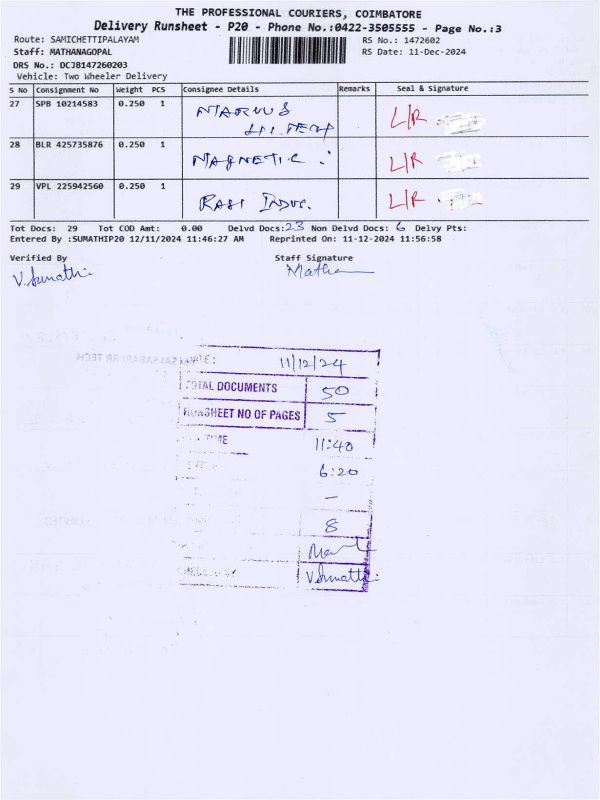 THE PROFESSIONAL COURIERS, COIMBATORE
Delivery Runsheet - P20 - Phone No.:0422-3505555 - Page No.:3
Route: SAMICHETTIPALAYAM
RS No.: 1472602
Staff: MATHANAGOPAL
RS Date: 11-Dec-2024
DRS No.: DCJB147260203
Vehicle: Two Wheeler Delivery
S No Consignment No Weight PCS Consignee Details Remarks Seal & Signature
27 SPB 10214583 0.250 1 L/R
28 BLR 425735876 0.250 1 MAGNETIC L/R
29 VPL 225942560 0.250 1 L/R
Tot Docs: 29 Tot COD Amt: 0.00 Delvd Docs:23 Non Delvd Docs: 6 Delvy Pts:
Entered By :SUMATHIP20 12/11/2024 11:46:27 AM Reprinted On: 11-12-2024 11:56:58
Verified By Staff Signature
V.Sumathi
11/12/24
TOTAL DOCUMENTS 50
RUNSHEET NO OF PAGES 5
TIME 11:40
6:20
-
8
V.Sumathi